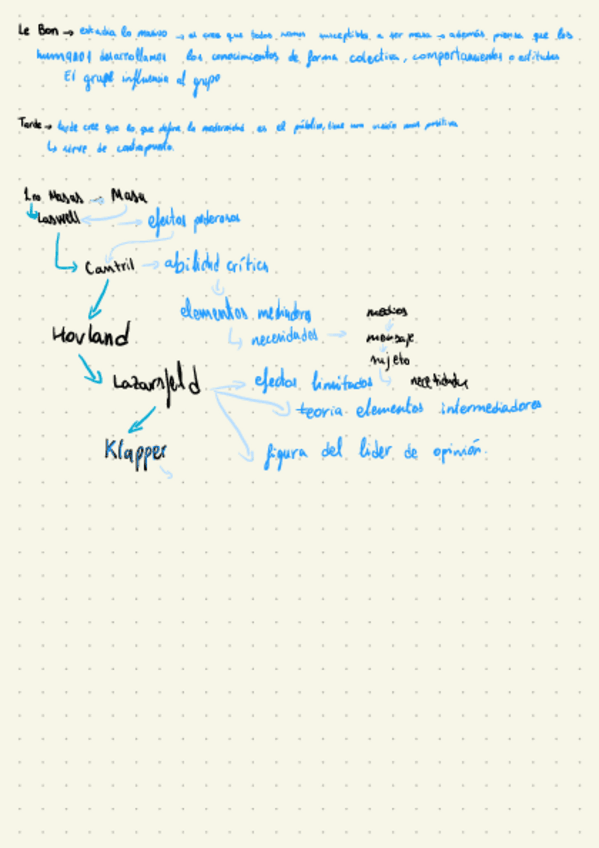 Le Bon → estudia lo masivo → él cree que todos somos susceptibles a ser masa → además, piensa que los
humanos desarrollamos los conocimientos de forma colectiva, comportamientos o actitudes
El grupo influencia al grupo
Tarde → tarde cree que lo que define la modernidad es el público, tiene una visión más positiva
↳ sirve de contrapunto.
Masas → Masa
Laswell → efectos poderosos
Cantril → abilidad crítica
elementos mediadores
medios
Hovland
↳ necesidades →
mensaje
sujeto
Lazarsfeld → efectos limitados
necesidades
teoria elementos intermediadores
Klapper
figura del lider de opinión.